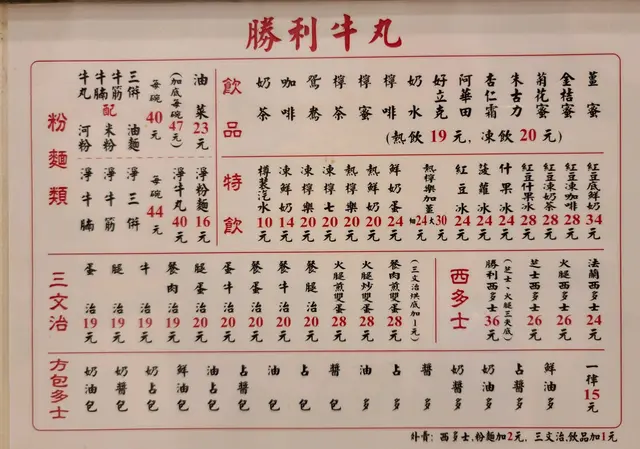 勝利牛丸
粉麵類
牛丸
牛腩 配 河粉
牛筋 米粉
三併 油麵
每碗40元
(加底每碗47元)
油菜23元
淨牛腩
淨牛筋
淨三併
每碗44元
淨牛丸40元
淨粉麵16元
飲品
奶茶
咖啡
鴛鴦
檸茶
檸蜜
檸啡
奶水
好立克
阿華田
杏仁霜
朱古力
菊花蜜
金桔蜜
薑蜜
(熱飲19元,凍飲20元)
特飲
樽裝汽水10元
凍鮮奶14元
凍檸樂20元
凍檸七20元
熱檸樂20元
熱鮮奶20元
鮮奶蛋24元
熱檸樂加薑 細24大30元
紅豆冰24元
菠蘿冰24元
什果冰24元
紅豆什果冰28元
紅豆凍奶茶28元
紅豆凍咖啡28元
紅豆底鮮奶34元
三文治
蛋治19元
腿治19元
牛治19元
餐肉治19元
腿蛋治20元
蛋牛治20元
餐蛋治20元
餐牛治20元
餐腿治20元
火腿煎雙蛋28元
火腿炒雙蛋28元
餐肉煎雙蛋28元
(三文治烘底加1元)
西多士
勝利西多士36元
(芝士、火腿三夾底)
芝士西多士26元
火腿西多士26元
法蘭西多士24元
方包多士
奶油包
奶醬包
奶占包
鮮油包
油占包
占醬包
油包
占包
醬包
油多
占多
醬多
奶醬多
奶油多
占醬多
鮮油多
一律15元
外賣:西多士,粉麵加2元,三文治,飲品加1元